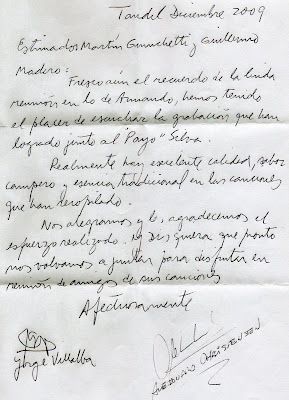 Tandil Diciembre 2009
Estimados Martín Gunchetti y Guillermo
Madero:
Fresco aún el recuerdo de la linda
reunión en lo de Armando, hemos tenido
el placer de escuchar la grabación que han
logrado junto al "Payo" Silva.
Realmente hay excelente calidad, sabor
campero y esencia tradicional en las canciones
que han recopilado.
Nos alegramos y les agradecemos el
esfuerzo realizado. Dios quiera que pronto
nos volvamos a juntar para disfrutar en
reunión de amigos de sus canciones
Afectuosamente
Jorge Villalba
Alejandro Christensen